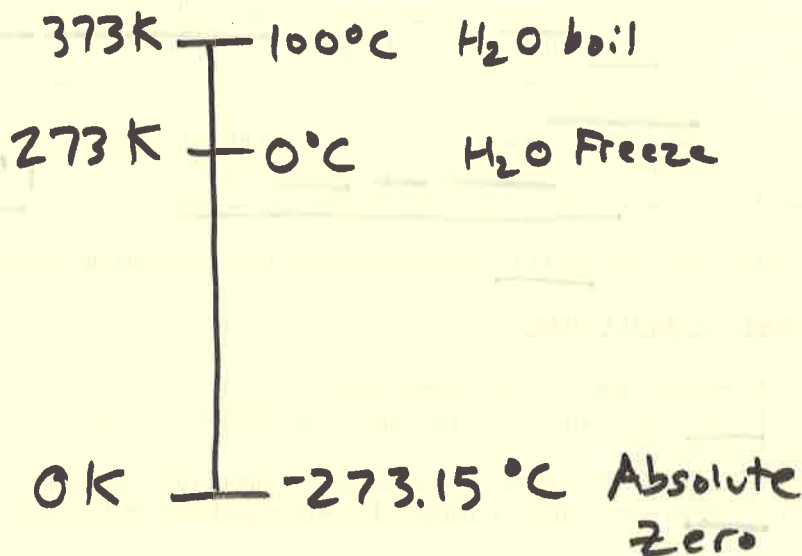 373K 100°C H₂O boil
273K 0°C H₂O Freeze
0K -273.15°C Absolute
Zero